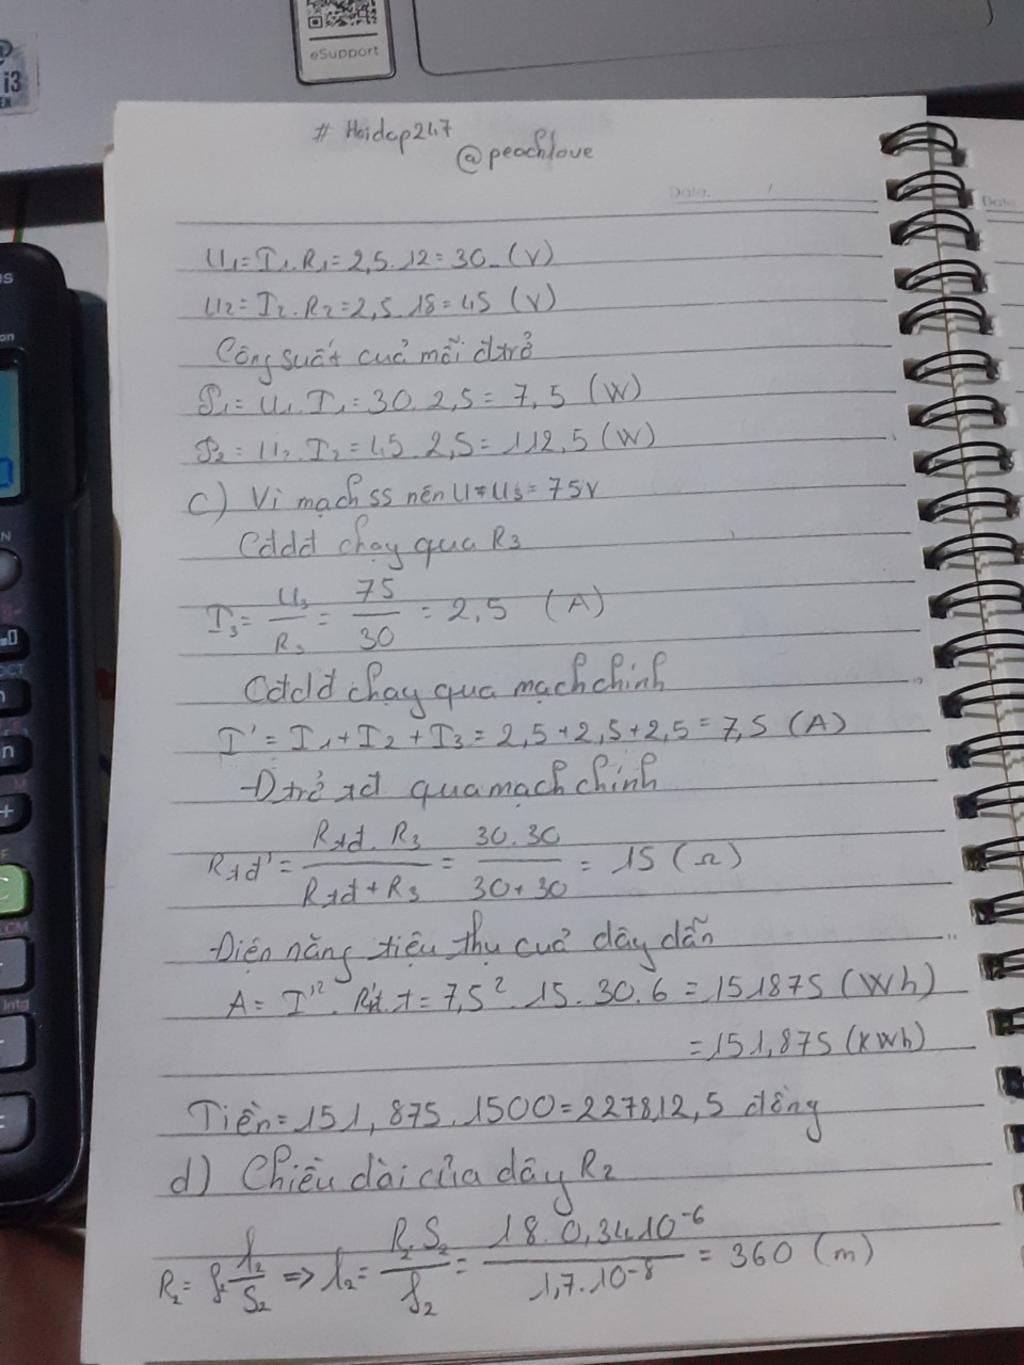 i3
eSupport
# Hoidap247
@peachlove
Date. /
U1 = I1. R1 = 2,5. 12 = 30 (V)
U2 = I2. R2 = 2,5. 18 = 45 (V)
Công suất cuả mỗi đtrở
P1 = U1. I1 = 30. 2,5 = 7,5 (W)
P2 = U2. I2 = 45. 2,5 = 112,5 (W)
c) Vì mạch ss nên U = U3 = 75V
Cđdđ chạy qua R3
I3 = U3/R3 = 75/30 = 2,5 (A)
Cđdđ chạy qua mạch chính
I' = I1 + I2 + I3 = 2,5 + 2,5 + 2,5 = 7,5 (A)
Đtrở tđ qua mạch chính
Rtđ' = Rtđ. R3/Rtđ + R3 = 30. 30/30 + 30 = 15 (Ω)
Điện năng tiệu thụ cuả dây dẫn
A = I'². Rtđ. t = 7,5². 15. 30. 6 = 151875 (Wh)
= 151,875 (KWh)
Tiền = 151,875. 1500 = 227812,5 đồng
d) Chiều dài của dây R2
R2 = ρ2 l2/S2 => l2 = R2. S2/ρ2 = 18. 0,34.10⁻⁶/1,7.10⁻⁸ = 360 (m)